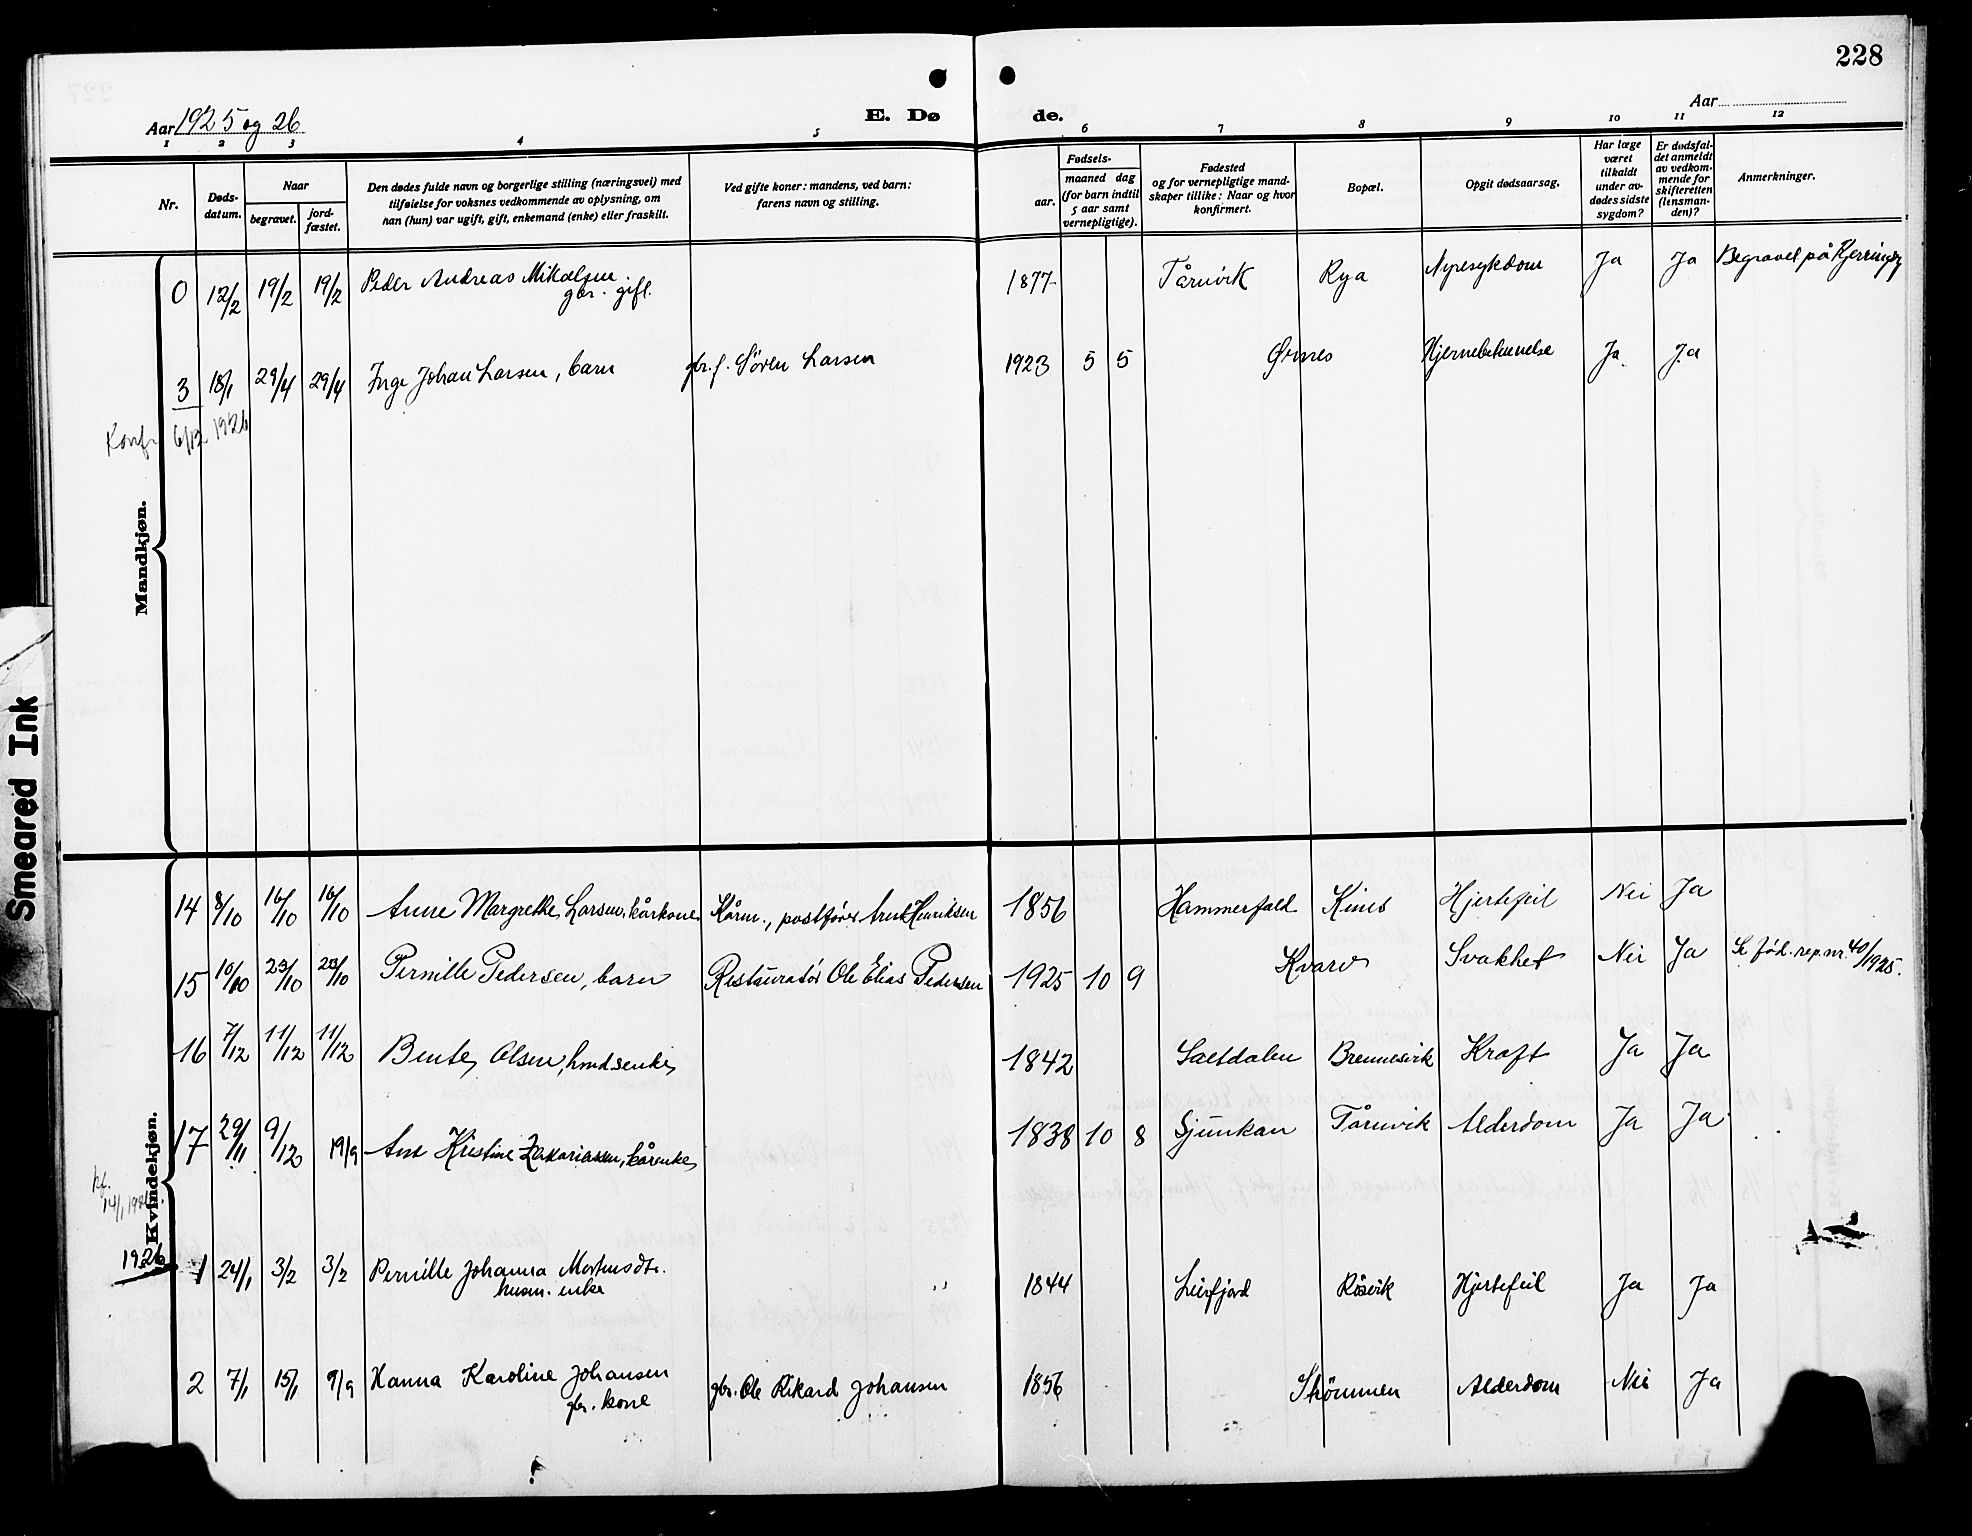 228
Aar 1925 og 26
E. Dø de.
Aar
1 2 3 4 5 6 7 8 9 10 11 12
Nr.
Døds-
datum.
Naar
begravet.
jord-
fæstet.
Den dødes fulde navn og borgerlige stilling (næringsvei) med
tilføielse for voksnes vedkommende av oplysning, om
han (hun) var ugift, gift, enkemand (enke) eller fraskilt.
Ved gifte koner: mandens, ved barn:
farens navn og stilling.
Fødsels-
aar.
maaned dag
(for barn indtil
5 aar samt
vernepligtige).
Fødested
og for vernepligtige mand-
skaper tillike: Naar og hvor
konfirmert.
Bopæl.
Opgit dødsaarsag.
Har læge
været
tilkaldt
under av-
dødes sidste
sygdom?
Er dødsfal-
det anmeldt
av vedkom-
mende for
skifteretten
(lensman-
den)?
Anmerkninger.
Mandkjøn.
0 12/2 19/2 19/2 Peder Andreas Mikalsen 1877 Tårnvik Rya Nyresykdom Ja Ja Begravel på Kjerringøy
gbr. gift.
3 18/1 29/4 29/4 Inge Johan Larsen, barn gbr. f. Søren Larsen 1923 5 5 Ørnes Hjernebetennelse Ja Ja
Konf. 6/12 1926
Kvindekjøn.
14 8/10 16/10 16/10 Anne Margrethe Larsen, kårkone Kårm., postfører Arnt Henriksen 1856 Hammerfald Kines Hjertefeil Nei Ja
15 10/10 23/10 23/10 Pernille Pedersen, barn Restauratør Ole Elias Pedersen 1925 10 9 Kvarv Svakhet Nei Ja Se fød. rep. nr. 40/1925.
16 7/12 11/12 11/12 Bente Olsen, hmdsenke 1842 Saltdalen Brennesvik Kræft Ja Ja
17 29/11 9/12 19/9 Ane Kristine Zakariassen, kårenke 1838 10 8 Sjunkan Tårnvik Alderdom Ja Ja
kf.
14/1 1926
1926
1 24/1 3/2 3/2 Pernille Johanna Mortensdtr. 1844 Leirfjord Røsvik Hjertefeil Ja Ja
husm. enke
2 7/1 15/1 9/9 Hanna Karoline Johansen gbr. Ole Rikard Johansen 1856 Strømmen Alderdom Nei Ja
gbr. kone
Smeared Ink